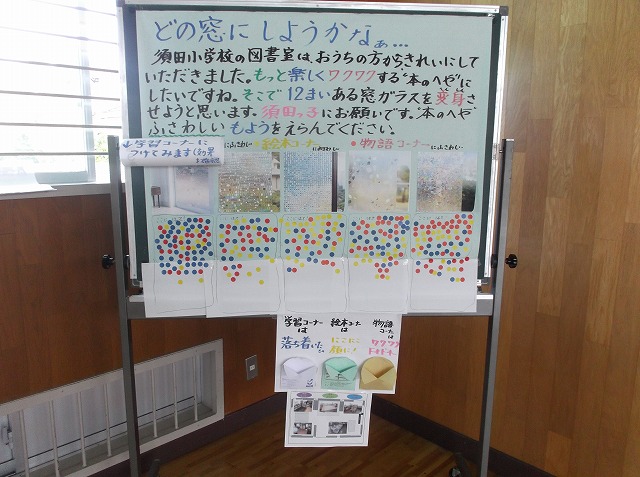 どの窓にしようかなぁ…
須田小学校の図書室は、おうちの方からきれいにして
いただきました。もっと楽しくワクワクする“本のへや”に
したいですね。そこで12まいある窓ガラスを変身さ
せようと思います。須田っ子にお願いです。“本のへや”
ふさわしいもようをえらんでください。
↓学習コーナーに
つけてみます(効果
にふさわしい
絵本コーナー
にふさわしい
物語コーナー
にふさわしい
学習コーナー
は
落ち着いた
絵本コーナー
は
にこにこ
物語
コーナー
は
ワクワク
ドキドキ